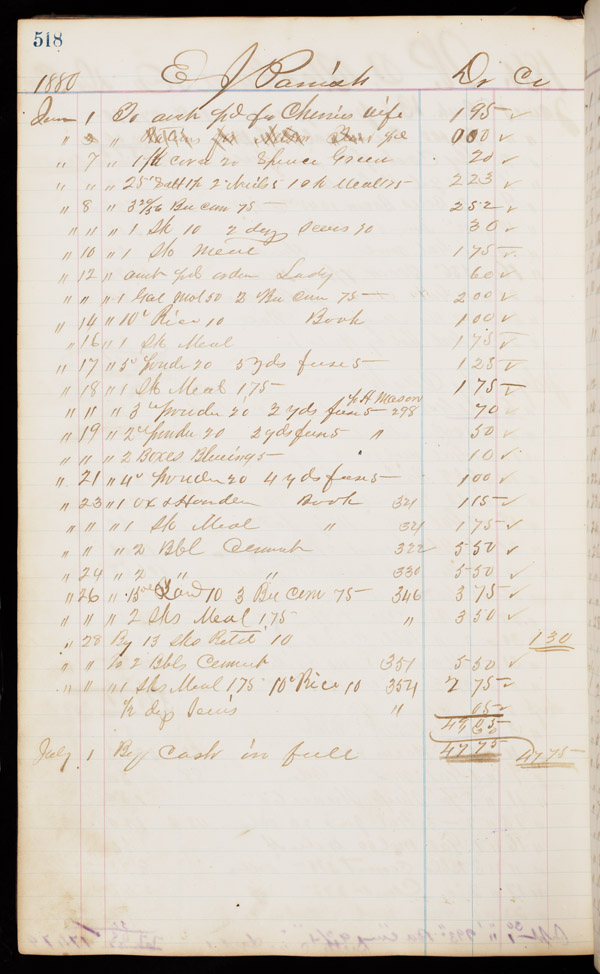 518
1880 E J Parrish Dr Cr
June 1 To amt pd for Cherries wife 1 95
" 3 " pd 000
" 7 " corn 20 Spruce Green 20
" " " 25# Salt 2 10 # Meal 2 23
" 8 " 3 20/56 Bu corn 75 2 52
" " " 1 Sk 10 2 doz 20 30
" 10 " 1 Sk Meal 1 75
" 12 " amt pd order Lady 60
" " " 1 Gal Mol 50 2 Bu corn 75 2 00
" 14 " 10# Rice 10 Book 1 00
" 16 " 1 Sk Meal 1 75
" 17 " 5# Powder 20 5 yds fuse 5 1 25
" 18 " 1 Sk Meal 175 1 75
" " " 3# Powder 20 2 yds fuse 5 Mason 298 70
" 19 " 2# Powder 20 2 yds fuse 5 " 50
" " " 2 Boxes Blueing 5 10
" 21 " 4# Powder 20 4 yds fuse 5 1 00
" 23 " 1 Book 321 1 15
" " " 1 Sk Meal " 321 1 75
" " " 2 Bbl Cement 322 5 50
" 24 " 2 " " 330 5 50
" 26 " 15# Lard 10 3 Bu corn 75 346 3 75
" " " 2 Sks Meal 175 " 3 50
" 28 By 13 Sks Retd 10 1 30
" " To 2 Bbls Cement 351 5 50
" " " 1 Sks Meal 175 10# Rice 10 354 2 75
½ doz " 05
July 1 By Cash in full 47 75 47 75